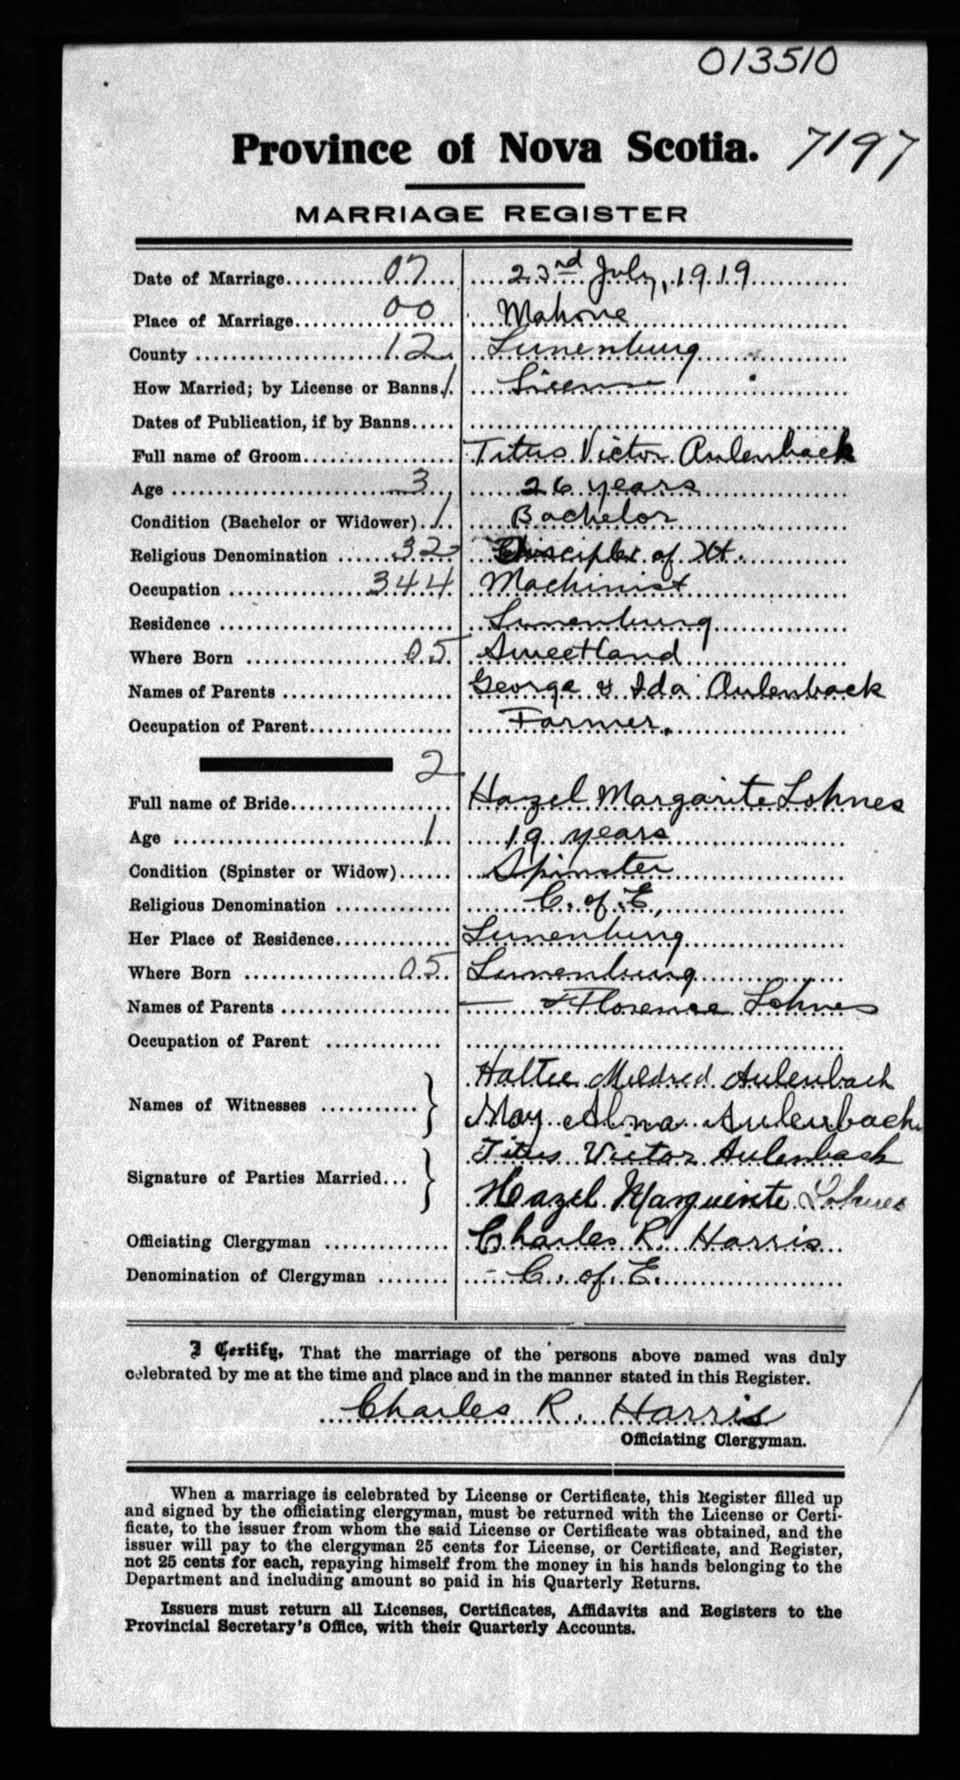 013510
Province of Nova Scotia. 7197
MARRIAGE REGISTER
Date of Marriage 07 23rd July, 1919
Place of Marriage 00 Mahone
County 12 Lunenburg
How Married; by License or Banns 1 License
Dates of Publication, if by Banns
Full name of Groom Titus Victor Aulenback
Age 3 26 years
Condition (Bachelor or Widower) 1 Bachelor
Religious Denomination 32 Disciples of Xt.
Occupation 344 Machinist
Residence Lunenburg
Where Born 05 Sweetland
Names of Parents George & Ida Aulenback
Occupation of Parent Farmer.
2
Full name of Bride Hazel Margarite Lohnes
Age 1 19 years
Condition (Spinster or Widow) Spinster
Religious Denomination C. of E,
Her Place of Residence Lunenburg
Where Born 05 Lunenburg
Names of Parents — & Florence Lohnes
Occupation of Parent
Hattie Mildred Aulenback
Names of Witnesses }
May Alma Aulenback
Titus Victor Aulenback
Signature of Parties Married... }
Hazel Marguirite Lohnes
Officiating Clergyman Charles R. Harris
Denomination of Clergyman - C. of E.
I Certify, That the marriage of the persons above named was duly
celebrated by me at the time and place and in the manner stated in this Register.
Charles R. Harris
Officiating Clergyman.
When a marriage is celebrated by License or Certificate, this Register filled up
and signed by the officiating clergyman, must be returned with the License or Certi-
ficate, to the issuer from whom the said License or Certificate was obtained, and the
issuer will pay to the clergyman 25 cents for License, or Certificate, and Register,
not 25 cents for each, repaying himself from the money in his hands belonging to the
Department and including amount so paid in his Quarterly Returns.
Issuers must return all Licenses, Certificates, Affidavits and Registers to the
Provincial Secretary's Office, with their Quarterly Accounts.